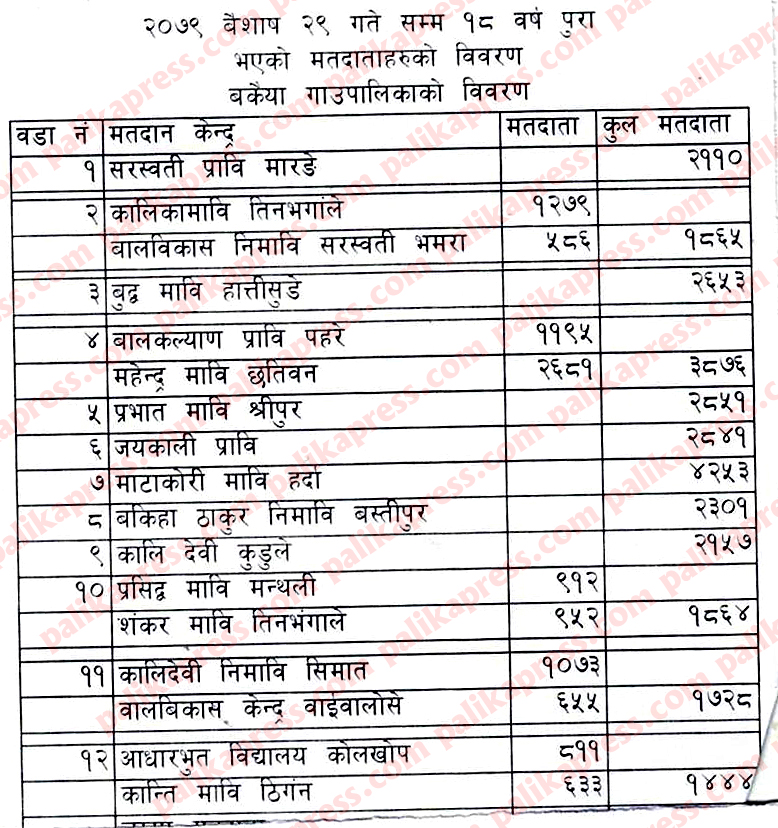 २०७९ वैशाष २९ गते सम्म १८ वर्ष पुरा
भएको मतदाताहरुको विवरण
बकैया गाउपालिकाको विवरण
वडा नं मतदान केन्द्र मतदाता कुल मतदाता
१ सरस्वती प्रावि मारडे २११०
२ कालिकामावि तिनभगांले १२७९
बालविकास निमावि सरस्वती भमरा ५८६ १८६५
३ बुद्व मावि हात्तीसुडे २६५३
४ बालकल्याण प्रावि पहरे ११९५
महेन्द्र मावि छतिवन २६८१ ३८७६
५ प्रभात मावि श्रीपुर २८५१
६ जयकाली प्रावि २८४१
७ माटाकोरी मावि हर्दा ४२५३
८ बकिहा ठाकुर निमावि बस्तीपुर २३०१
९ कालि देवी कुडुले २१५७
१० प्रसिद्व मावि मन्थली ९१२
शंकर मावि तिनभंगाले ९५२ १८६४
११ कालिदेवी निमावि सिमात १०७३
वालबिकास केन्द्र वाईवालोसे ६५५ १७२८
१२ आधारभुत विद्यालय कोलखोप ८११
कान्ति मावि ठिगंन ६३३ १४४४
palikapress.com